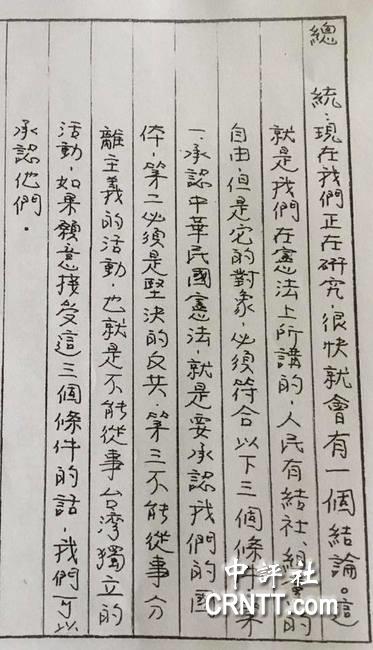 總　統:現在我們正在研究,很快就會有一個結論。這
就是我們在憲法上所講的,人民有結社、組的
自由,但是它的對象,必須符合以下三個條件第
一、承認中華民國憲法,就是要承認我們的國
体,第二必須是堅決的反共,第三不能從事分
離主義的活動,也就是不能從事台灣獨立的
活動,如果願意接受這三個條件的話,我們可以
承認他們.
中評社
CRNTT.com